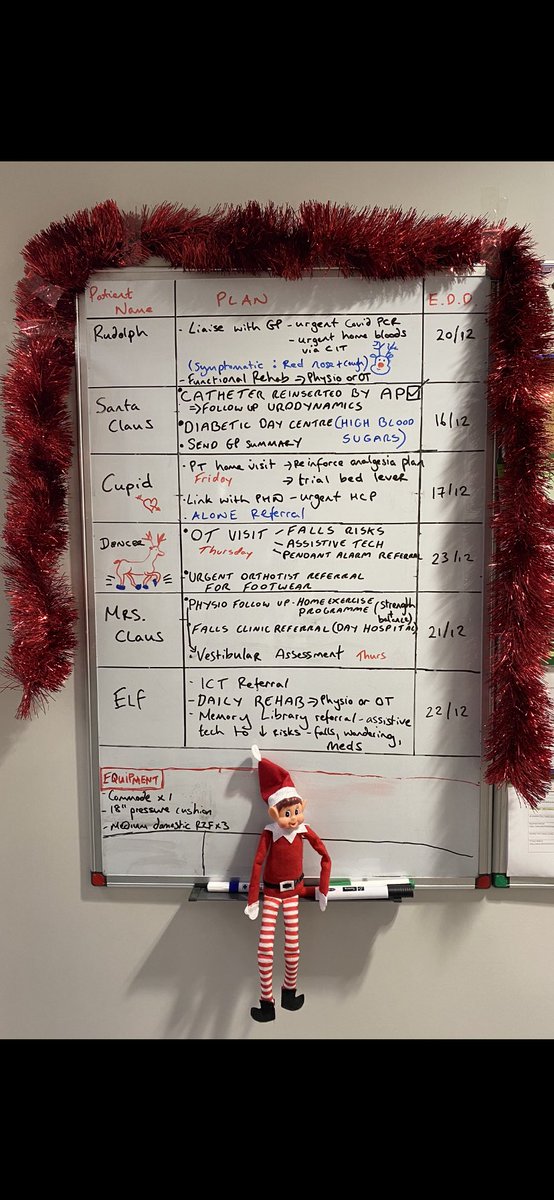 Patient Name
PLAN
E.D.D.
Rudolph
- Liaise with GP - urgent Covid PCR
- urgent home bloods
via CIT
(Symptomatic : Red nose + cough)
- Functional Rehab ⇒ Physio or OT
20/12
Santa
Claus
• CATHETER REINSERTED BY AP ☑
⇒ FOLLOW UP URODYNAMICS
• DIABETIC DAY CENTRE (HIGH BLOOD
SUGARS)
• SEND GP SUMMARY
16/12
Cupid
- PT home visit → Reinforce analgesia plan
Friday → trial bed lever
- Link with PHN - urgent HCP
. ALONE Referral
17/12
Dancer
• OT VISIT - FALLS RISKS
Thursday - ASSISTIVE TECH
- PENDANT ALARM REFERRAL
• URGENT ORTHOTIST REFERRAL
FOR FOOTWEAR
23/12
MRS.
Claus
• PHYSIO FOLLOW UP - HOME EXERCISE
PROGRAMME (strength +
balance)
• FALLS CLINIC REFERRAL (DAY HOSPITAL)
• Vestibular Assessment Thurs
21/12
ELF
- ICT Referral
- DAILY REHAB ⇒ Physio or OT
- Memory Library referral - assistive
tech to ↓ risks - falls, wandering,
meds
22/12
EQUIPMENT
- Commode x 1
- 18" pressure cushion
- Medium domestic RZF x 3